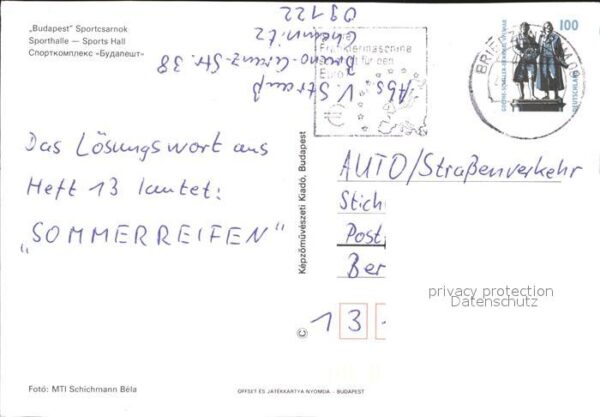 „Budapest" Sportcsarnok
Sporthalle — Sports Hall
Спорткомплекс «Будапешт»
Das Lösungswort aus
Heft 13 lautet:
„SOMMERREIFEN"
Foto: MTI Schichmann Béla
Abs V. Strauß
Bruno-Granz-Str. 38
Chemnitz
09122
Frankiermaschine
für den
Euro
BRIEF
100
DEUTSCHLAND
Képzőművészeti Kiadó, Budapest
©
AUTO/Straßenverkehr
Stich
Post
Ber
13
privacy protection
Datenschutz
OFFSET ÉS JÁTÉKKÁRTYA NYOMDA – BUDAPEST